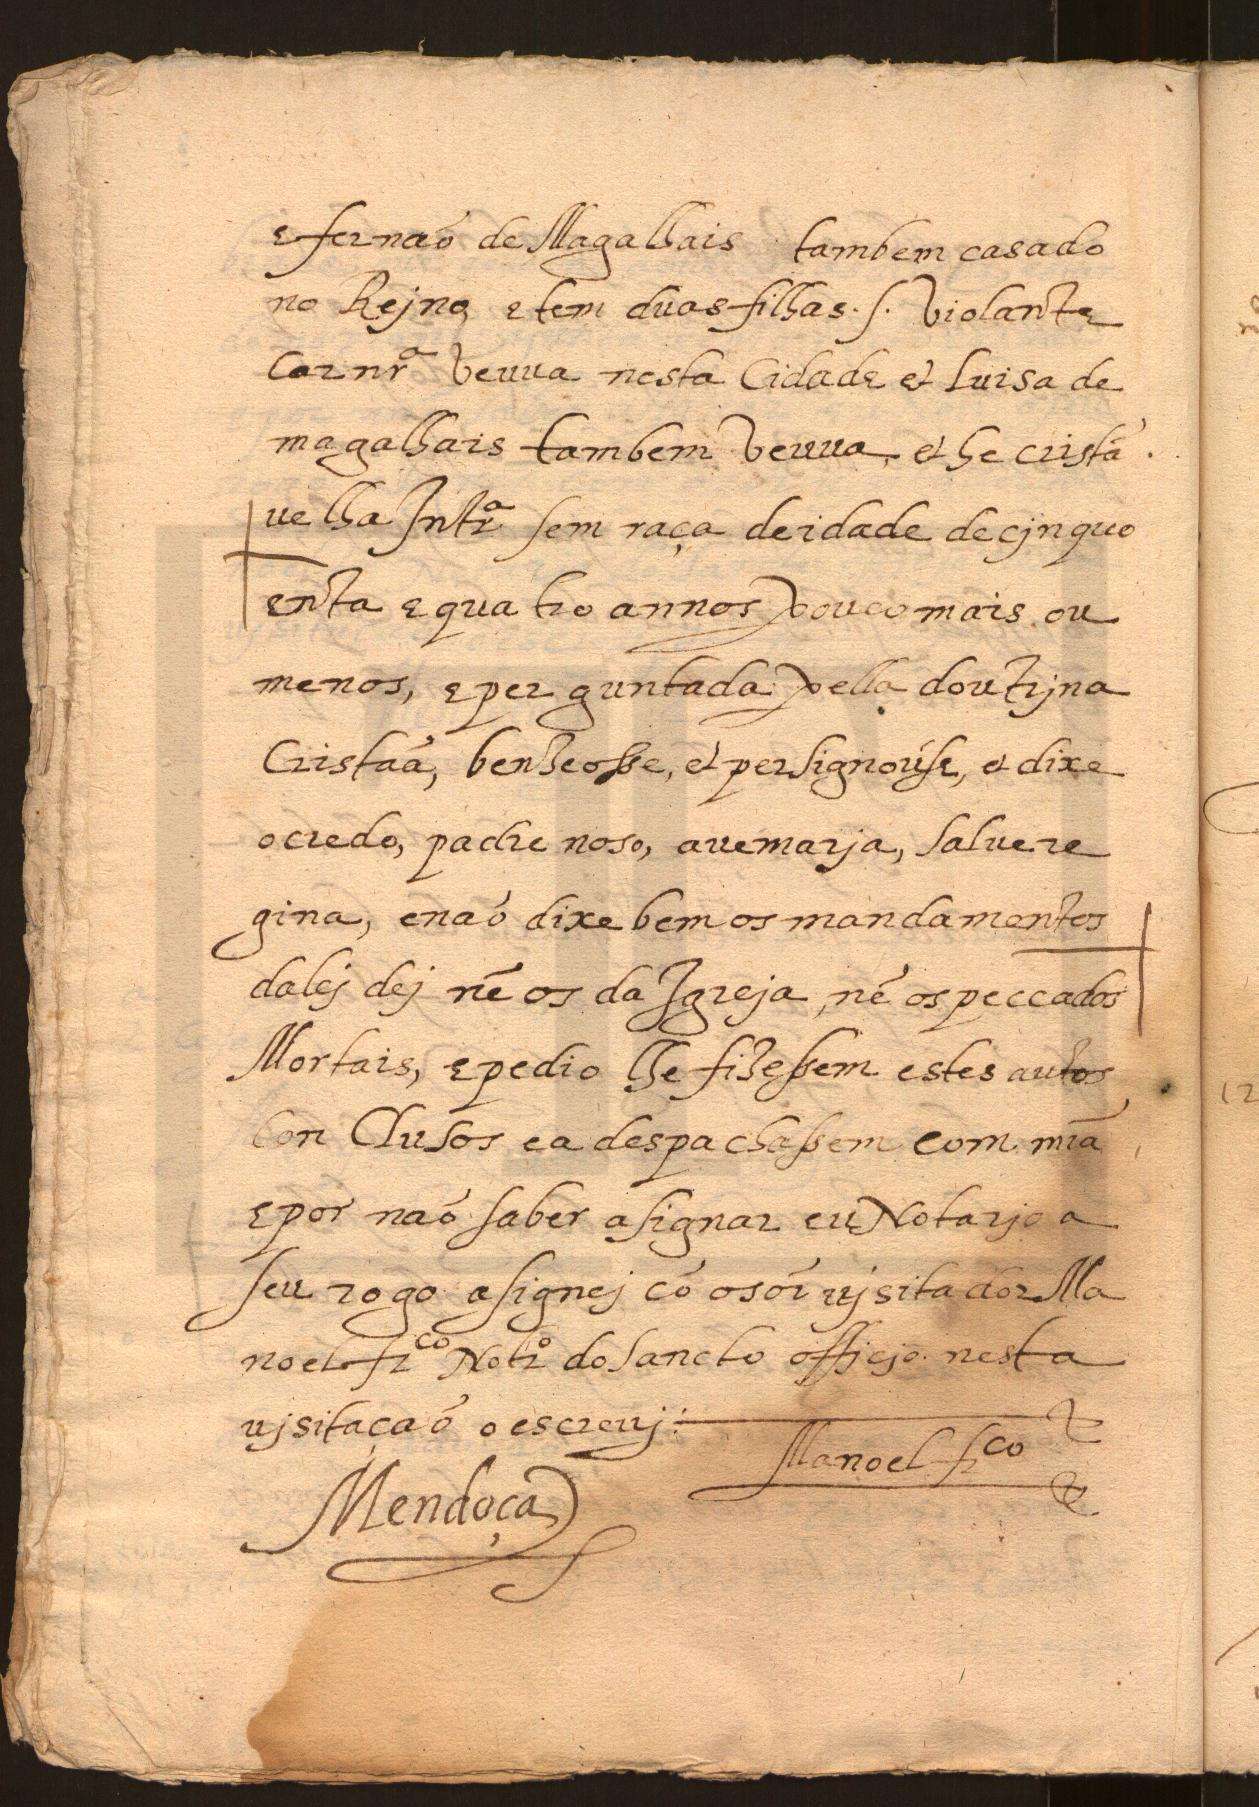 e fernaõ de Magalhais tambem casado
no Rejno, e tem duas filhas .s. Violante
Carnrª veuua nesta Cidade et Luisa de
magalhais tambem veuua, et he cristã
velha Intrª sem raça de idade de cinquo
enta e quatro annos pouco mais ou
menos, e perguntada pella doutrjna
Cristaã, benzeosse, et persignouse, et dixe
o credo, padre noso, auemarja, salue re
gina, e naõ dixe bem os mandamentos
da lej dej nẽ os da Igreja, nẽ os peccados
Mortais, e pedio lhe fizessem estes autos
Con Clusos e a despachassem com mia
e por naõ saber asignar eu Notarjo a
seu rogo asignej cõ o sõr ujsitador Ma
noel frco Notrº do sancto officjo nesta
ujsitaçaõ o escreuj:
Manoel frco
Mendoça